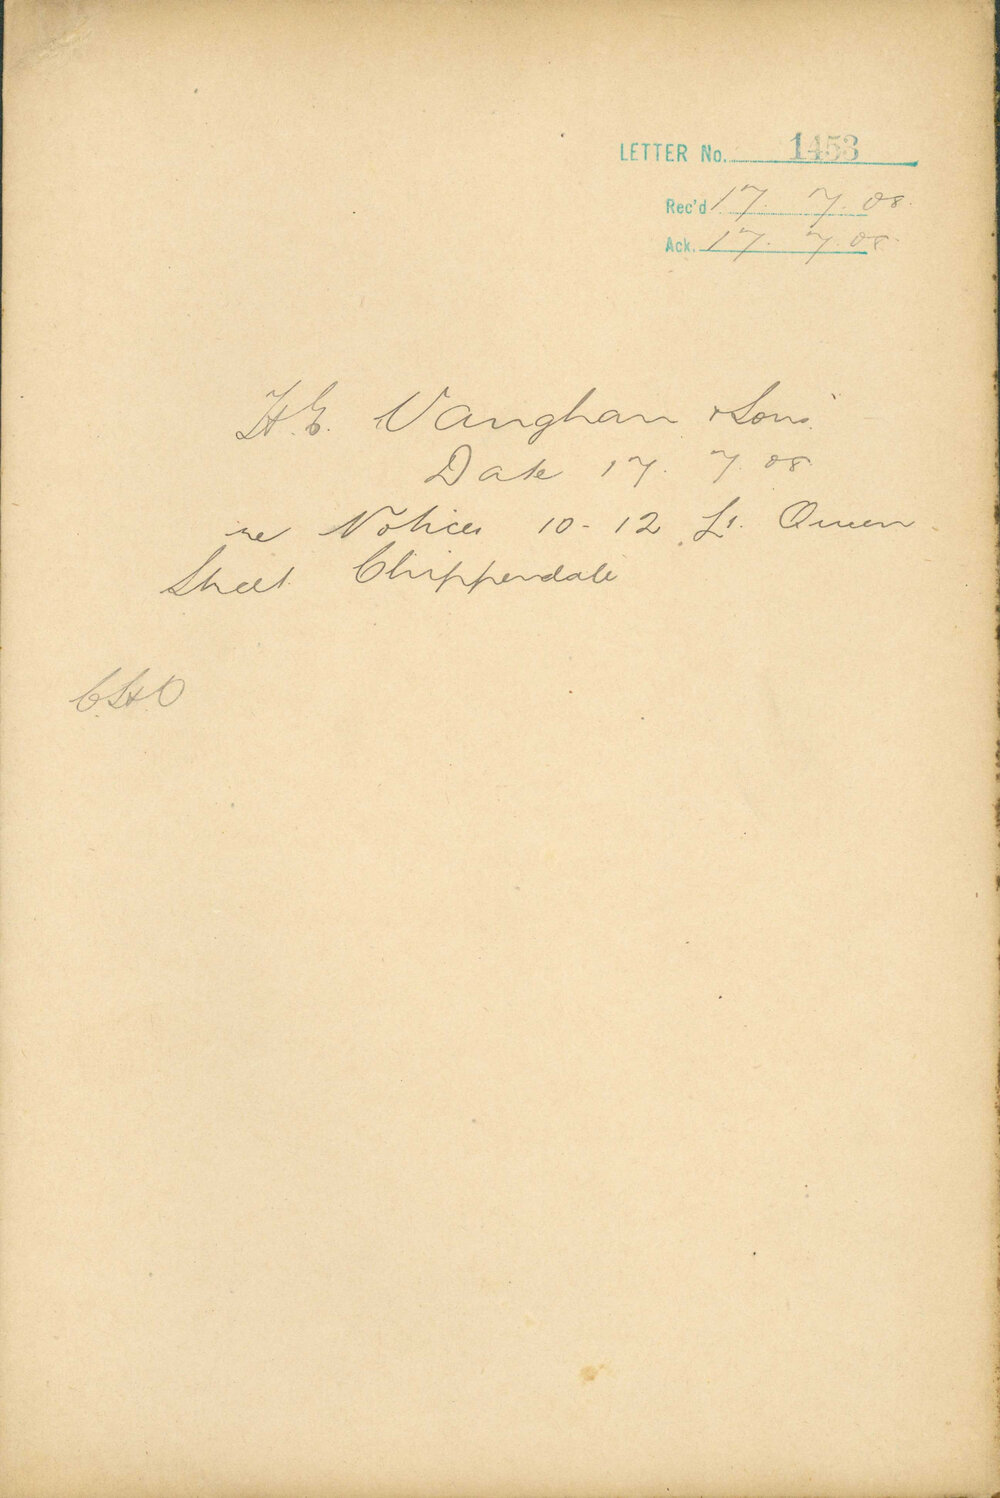 LETTER No. 1453
Rec'd 17. 7. 08.
Ack. 17. 7. 08
H. E. Vaughan & Sons
Date 17. 7. 08
re Notices 10-12 Lt. Queen
Street Chippendale
C.H.O